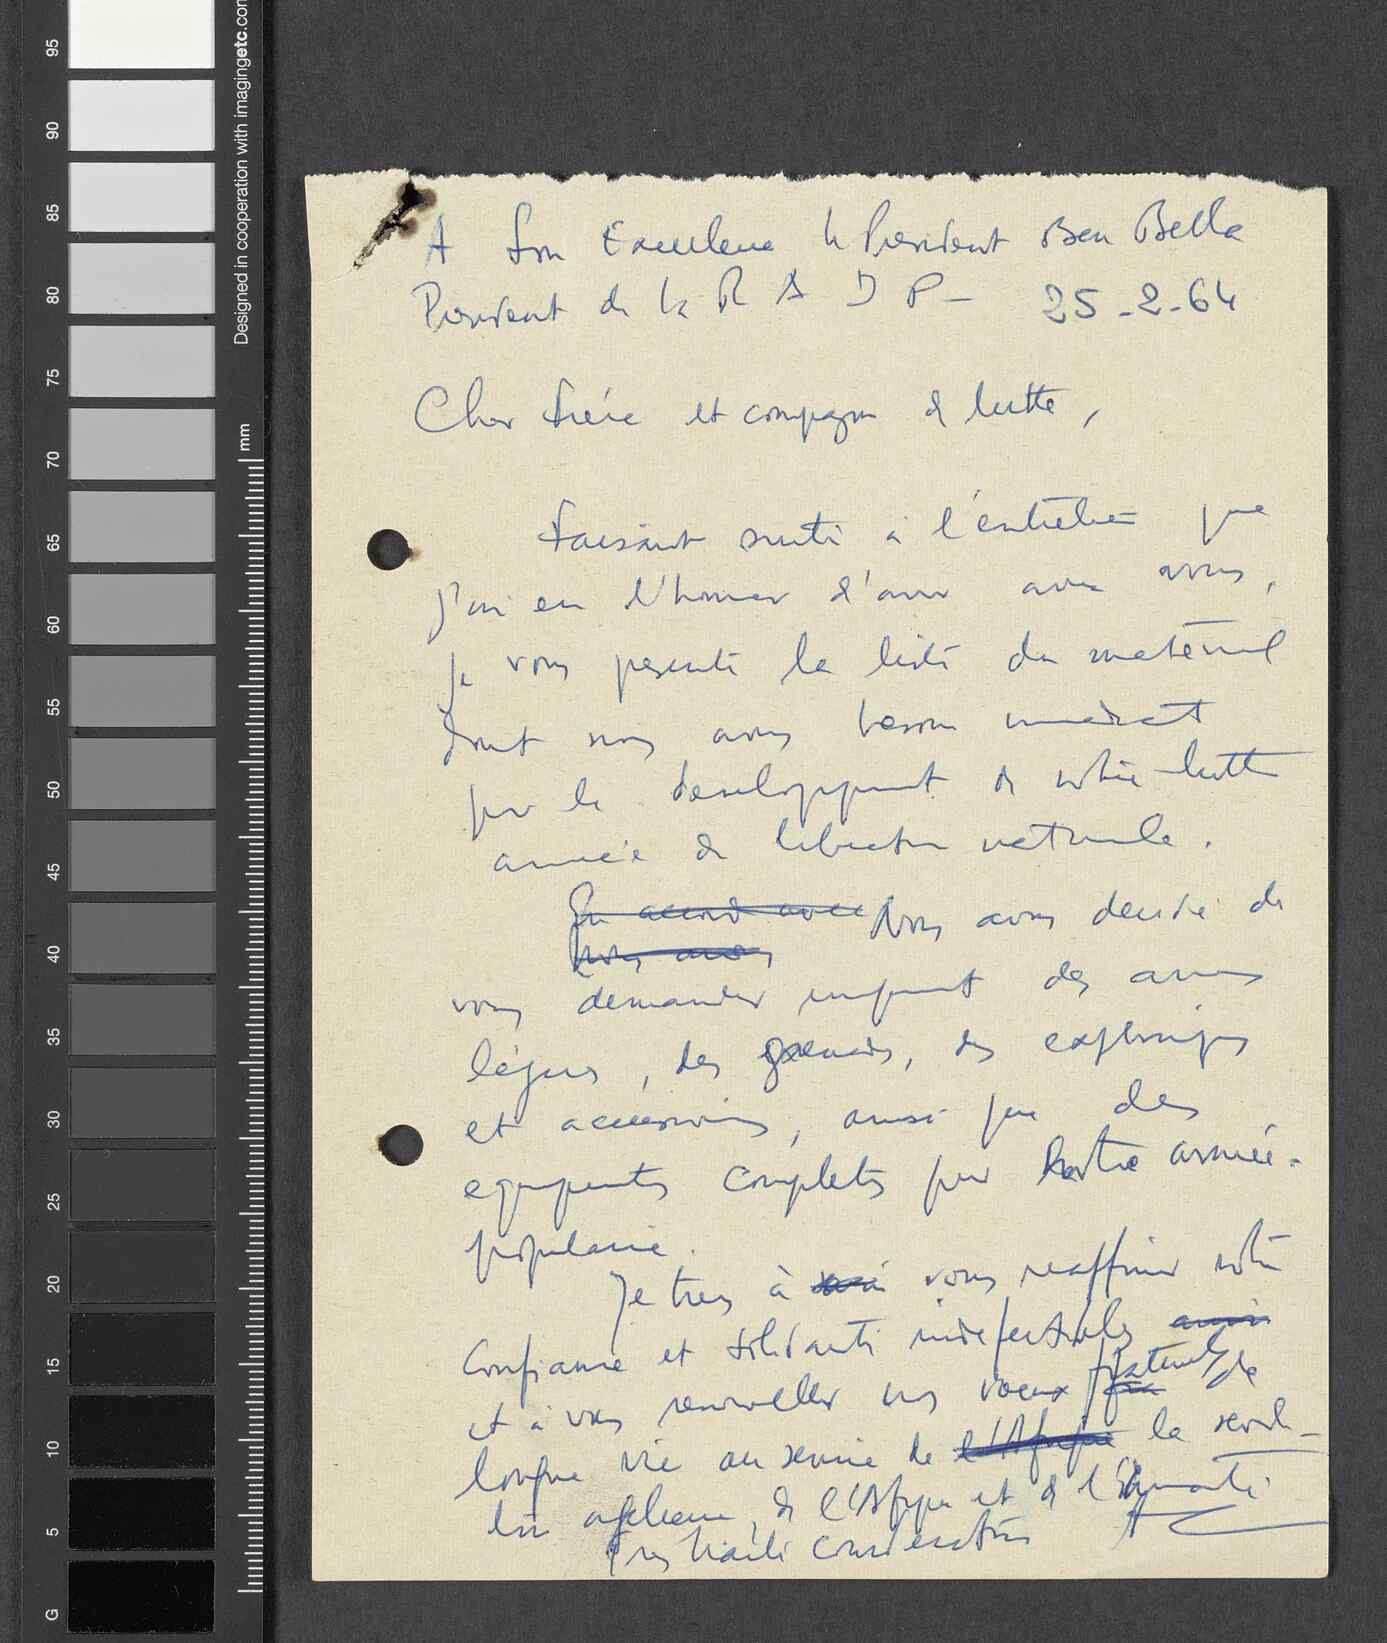 A Son Excellence le President Ben Bella
President de la R A D P - 25-2-64
Cher frère et compagnon de lutte,
Faisant suite à l'entretien que
j'ai eu l'honneur d'avoir avec vous,
je vous presente la liste du materiel
dont nous avons besoin immediat
pour le developpement de notre lutte
armée de liberation nationale.
En accord avec Nous avons decidé de
nous avons
vous demander des armes
légères, des grenades, des explosifs
et accessoires, ainsi que des
equipements complets pour notre armée
populaire.
Je tiens à vous reaffirmer notre
confiance et solidarité indefectibles
et à vous renouveller nos voeux fraternels de
longue vie au service de l'Afrique la revolu-
tion algerienne, de l'Afrique et de l'Humanité
Très haute consideration
95
90
85
80
75
70
65
60
55
50
45
40
35
30
25
20
15
10
5
G
Designed in cooperation with imagingetc.com
mm